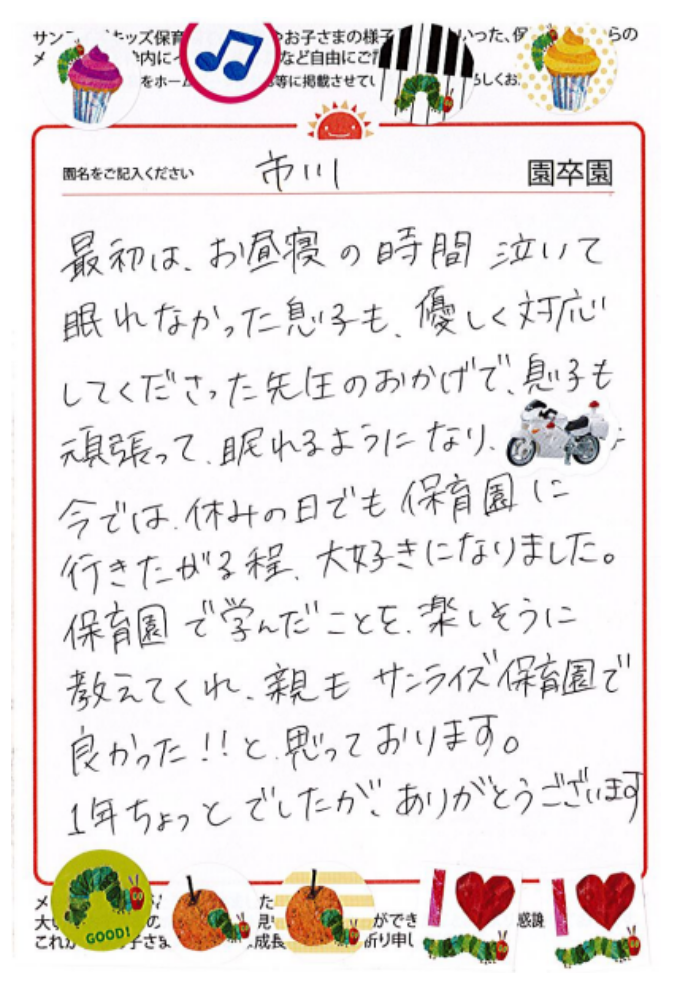 キッズ保育
お子さまの様子
いった、保
らの
メ
内に
など自由にご
をホー
等に掲載させてい
しくお
園名をご記入ください 市川 園卒園
最初は、お昼寝の時間 泣いて
眠れなかった息子も、優しく対応
してくださった先生のおかげで、息子も
頑張って、眠れるようになり、
今では、休みの日でも保育園に
行きたがる程、大好きになりました。
保育園で学んだことを、楽しそうに
教えてくれ、親もサンライズ保育園で
良かった!!と、思っております。
1年ちょっとでしたが、ありがとうございます
GOOD!
I
I
メ
た
大
の
ができ
感謝
これか
子さま
成長
祈り申し